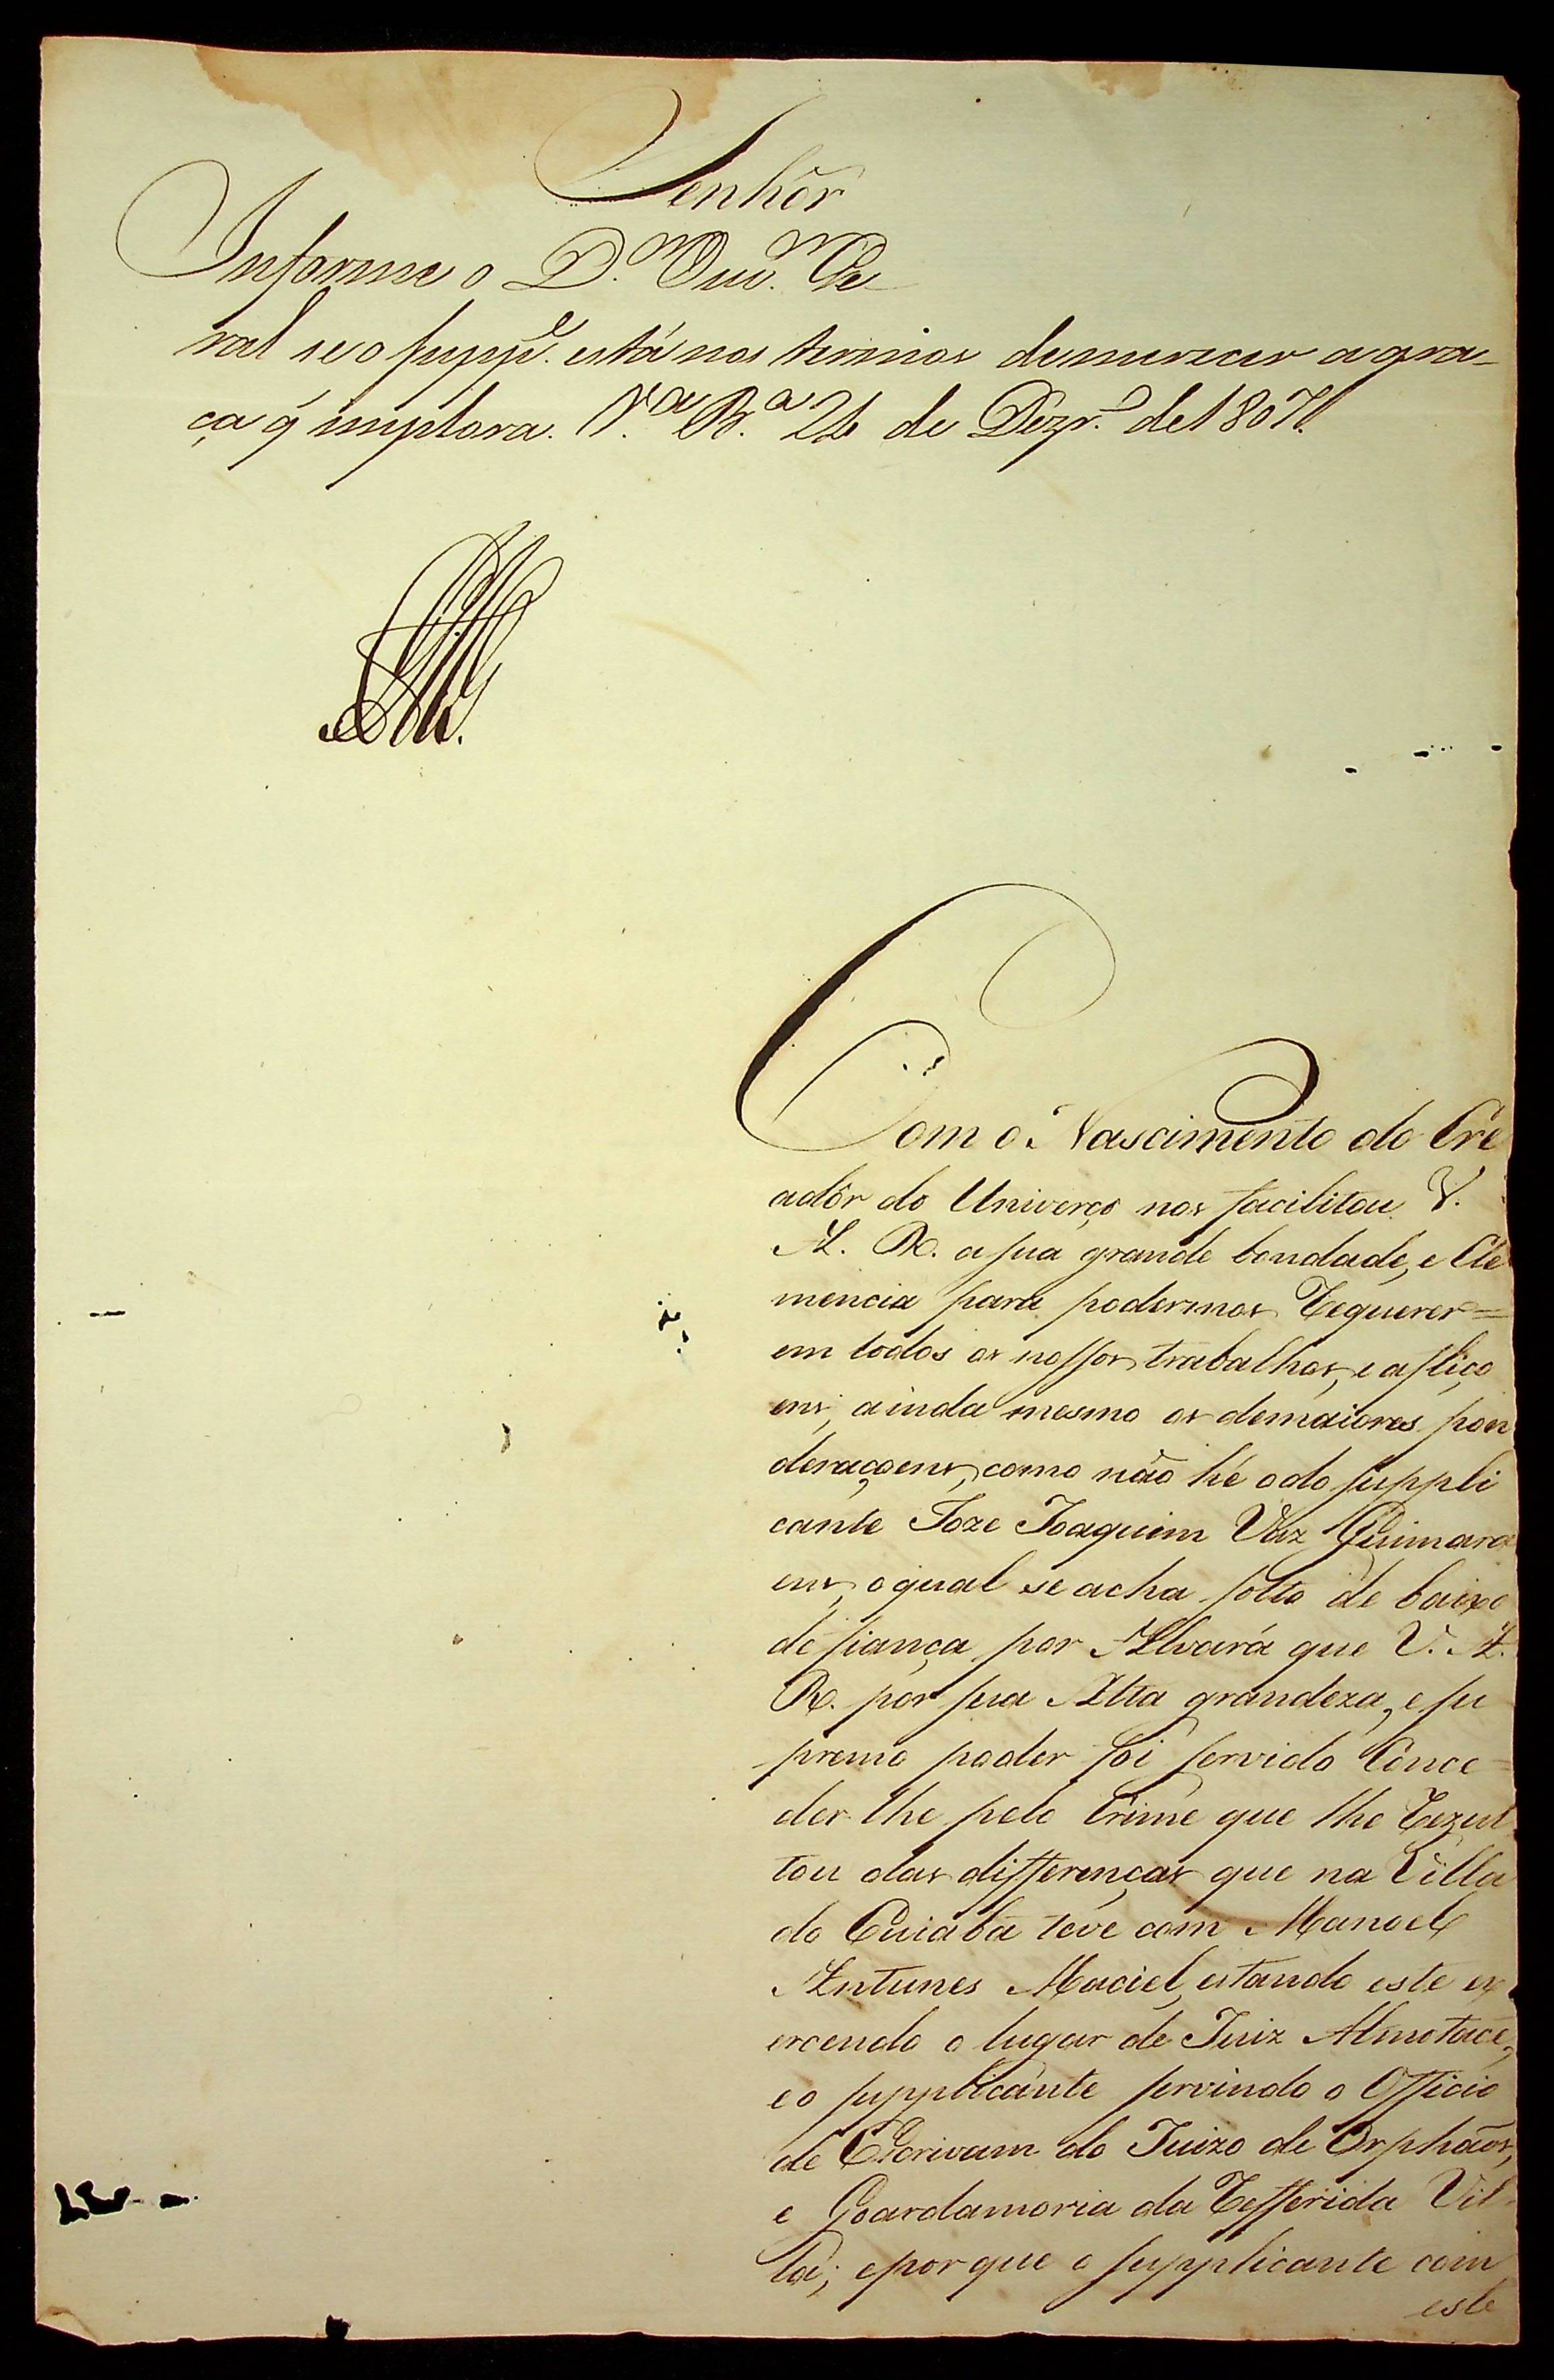 Senhôr
Informe o D.ᵒʳ Ouv.ᵒʳ Ge
ral se o supp.ᵉ está nos termos demerecer agra-
ça q̃ implora. V.ᵃ B.ᵃ 24 de Dezr.ᵒ de 1807.
Com o Nascimento do Cre
adôr do Univerço nos facilitou V.
A. R. a sua grande bondade, e Cle
mencia para podermos Requerer=
em todos os nossos trabalhos, e afliço
ens, ainda mesmo os demaiores pon
deraçoens, como não hé odo suppli
cante Joze Joaquim Vaz Guimara
ens, oqual se acha solto de baixo
de fiança por Alvará que V. A.
R. por sua Alta grandeza, e su
premo poder foi servido Conce=
der lhe pelo Crime que lhe Rezul
tou das differenças que na Villa
do Cuiabá teve com Manoel
Antunes Maciel, estando este ex
ercendo o lugar de Juiz Almotacé,
e o supplicante servindo o Officio
de Escrivam do Juizo de Orphãos,
e Goardamoria da Refferida Vil-
la; eporque o supplicante com
este